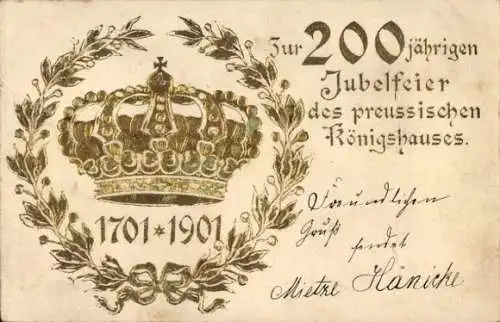 Zur 200 jährigen
Jubelfeier
des preussischen
Königshauses.
1701 * 1901
Freundlichen
Gruß
sendet
Mietze Hänicke